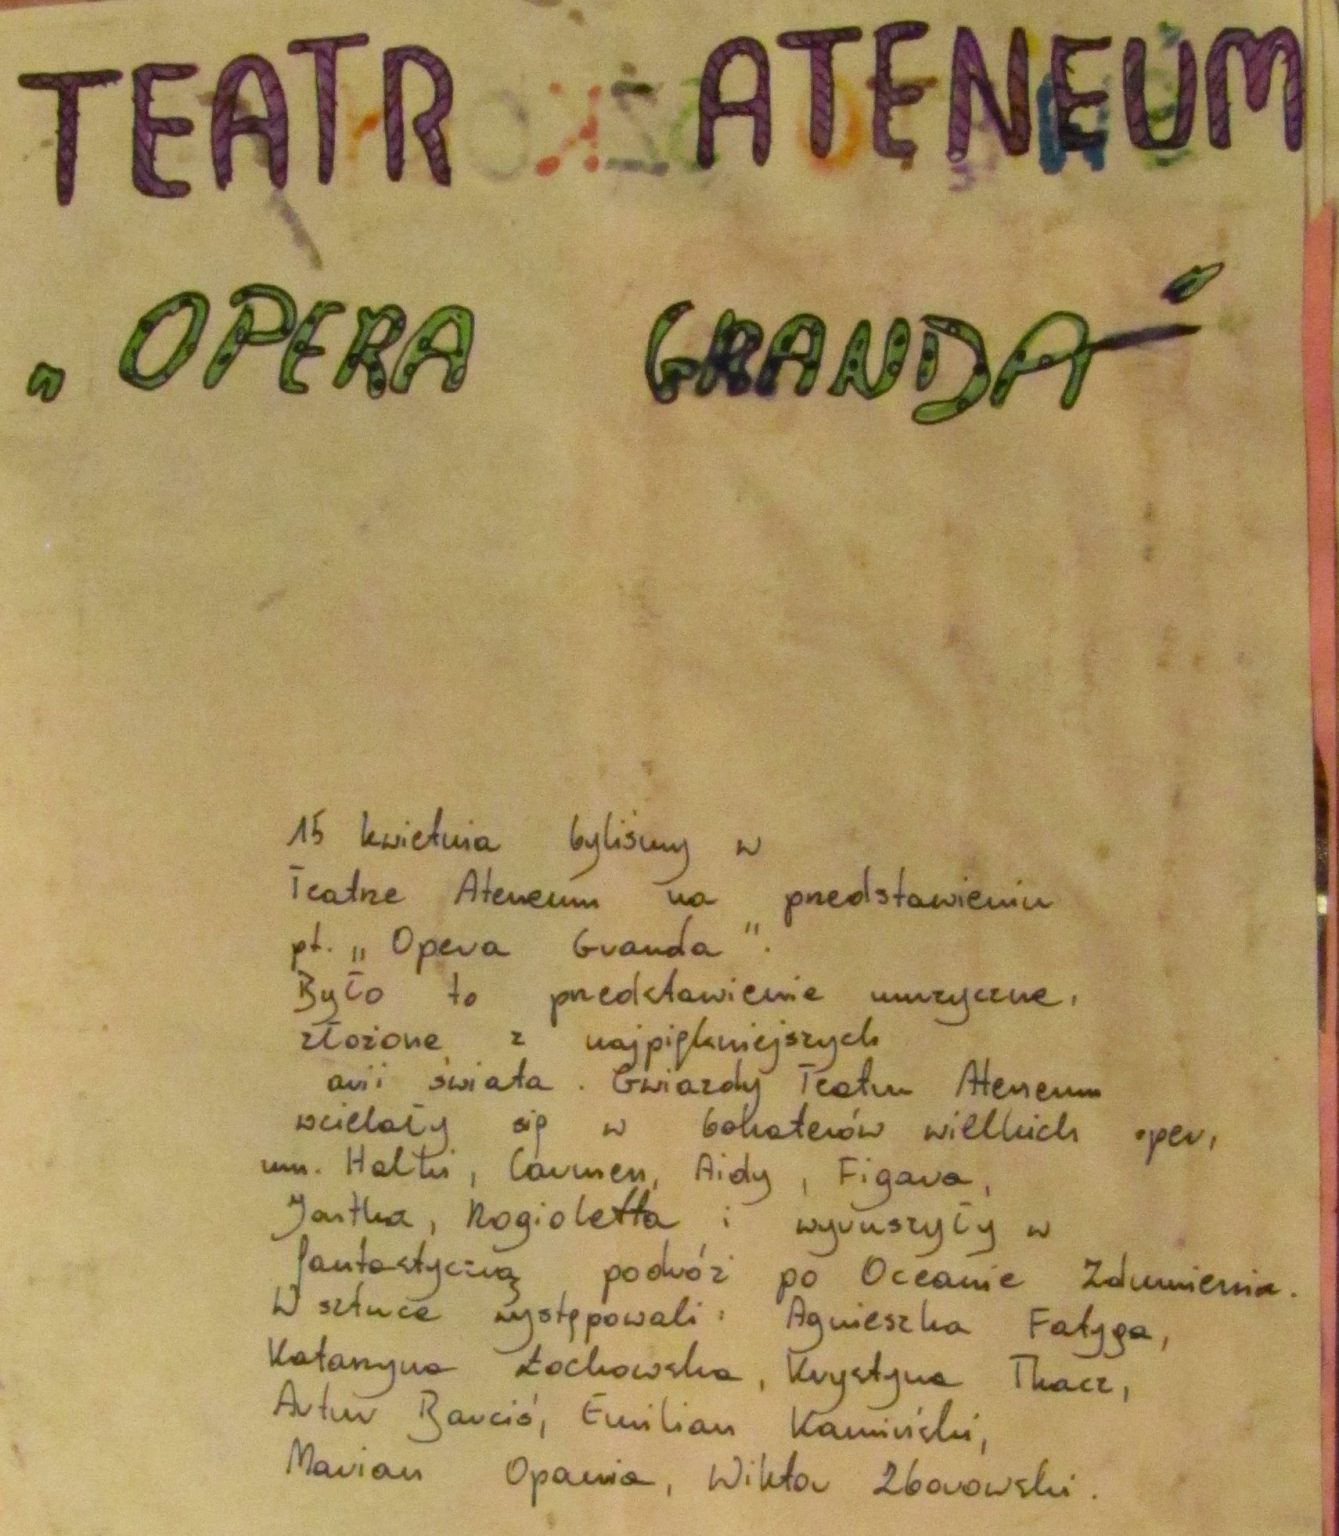 TEATR ATENEUM
„OPERA GRANDA"
15 kwietnia byliśmy w
Teatrze Ateneum na przedstawieniu
pt. „Opera Granda".
Było to przedstawienie muzyczne,
złożone z najpiękniejszych
arii świata. Gwiazdy Teatru Ateneum
wcielały się w bohaterów wielkich oper,
m.in. Halki, Carmen, Aidy, Figara,
Jontka, Rogioletta i wyruszyły w
fantastyczną podróż po Oceanie Zdumienia.
W sztuce występowali: Agnieszka Fatyga,
Katarzyna Łochowska, Krystyna Tkacz,
Artur Barciś, Emilian Kamiński,
Marian Opania, Wiktor Zborowski.